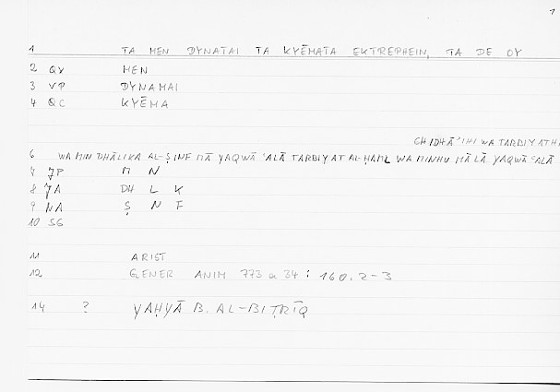 1
1 TA MEN DYNATAI TA KYĒMATA EKTREPHEIN, TA DE OY
2 QY MEN
3 VP DYNAMAI
4 QC KYĒMA
GHIDHĀ'IHI WA TARBIYATH
6 WA MIN DHĀLIKA AL-ṢINF MĀ YAQWĀ ʿALĀ TARBIYAT AL-ḤAML WA MINHU MĀ LĀ YAQWĀ ʿALĀ
7 JP M N
8 JA DH L K
9 NA Ṣ N F
10 SG
11 ARIST
12 GENER ANIM 773 a 34 : 160.2-3
14 ? YAḤYĀ B. AL-BIṬRĪQ